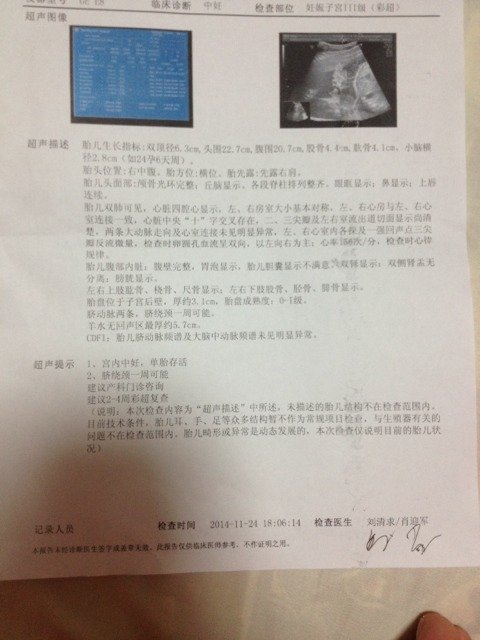 临床诊断 中妊 检查部位 妊娠子宫III级（彩超）
超声图像
超声描述 胎儿生长指标:双顶径6.3cm,头围22.7cm,腹围20.7cm,股骨4.4cm,肱骨4.1cm,小脑横
径2.8cm（如24孕6天周）。
胎头位置:右中腹，胎方位:横位，胎先露:先露右肩。
胎儿头面部:颅骨光环完整；丘脑显示，各段脊柱排列整齐。眼眶显示；鼻显示；上唇
连续。
胎儿双肺可见，心脏四腔心显示，左、右房室大小基本对称，左、右心房与左、右心
室连接一致，心脏中央“十”字交叉存在，二、三尖瓣及左右室流出道切面显示尚清
楚，两条大动脉走向及心室连接未见明显异常，左、右心室内各探及一强回声点三尖
瓣反流微量，检查时卵圆孔血流呈双向，以左向右为主；心率156次/分，检查时心律
规律。
胎儿腹部内脏：腹壁完整，胃泡显示，胎儿胆囊显示不满意。双肾显示；双侧肾盂无
分离；膀胱显示。
左右上肢肱骨、桡骨、尺骨显示；左右下肢股骨、胫骨、腓骨显示。
胎盘位于子宫后壁，厚约3.1cm，胎盘成熟度：0-I级。
脐动脉两条，脐绕颈一周可能。
羊水无回声区最厚约5.7cm。
CDFI：胎儿脐动脉频谱及大脑中动脉频谱未见明显异常。
超声提示 1、宫内中妊，单胎存活
2、脐绕颈一周可能
建议产科门诊咨询
建议2-4周彩超复查
（说明：本次检查内容为“超声描述”中所述，未描述的胎儿结构不在检查范围内。
目前技术条件，胎儿耳、手、足等众多结构暂不作为常规项目检查，与生殖器有关的
问题不在检查范围内。胎儿畸形或异常是动态发展的，本次检查仅说明目前的胎儿状
况）
记录人员 检查时间 2014-11-24 18:06:14 检查医生 刘清求/肖迎军
本报告未经诊断医生签字或盖章无效。此报告仅供临床医师参考，不作证明之用。